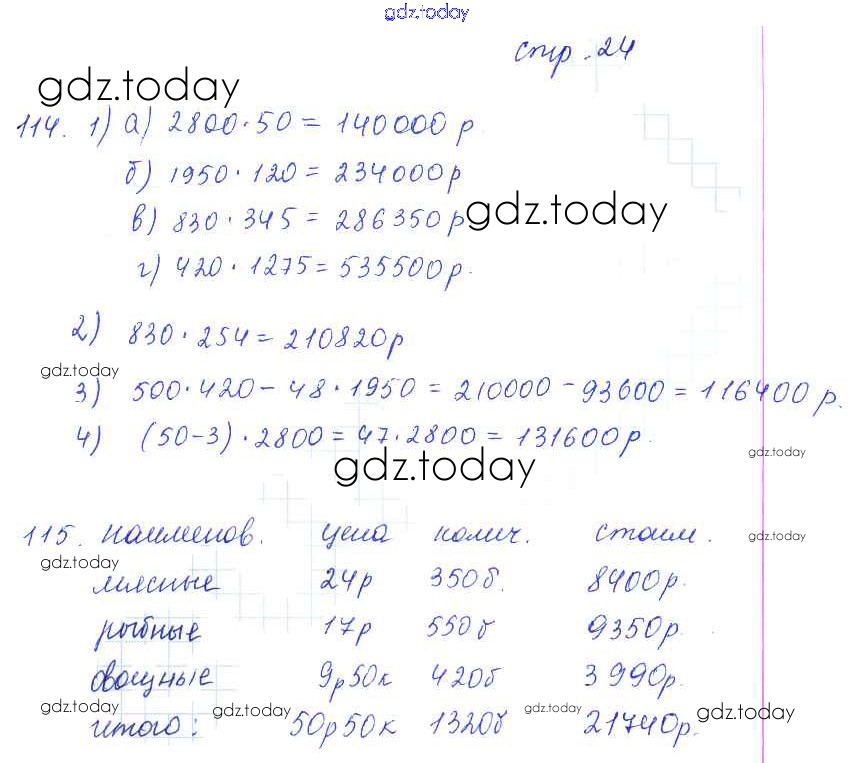 gdz.today
стр. 24
gdz.today
114. 1) а) 2800·50 = 140000 р
б) 1950·120 = 234000р
в) 830·345 = 286350р gdz.today
г) 420·1275 = 535500р.
2) 830·254 = 210820р
gdz.today
3) 500·420 - 48·1950 = 210000 - 93600 = 116400 р.
4) (50-3)·2800 = 47·2800 = 131600р.
gdz.today gdz.today
115. наименов. цена колич. стоим.
gdz.today gdz.today
мясные 24р 350б. 8400р.
рыбные 17р 550б 9350р.
овощные 9р50к 420б 3990р.
gdz.today gdz.today gdz.today gdz.today
итого: 50р50к 1320б 21740р.